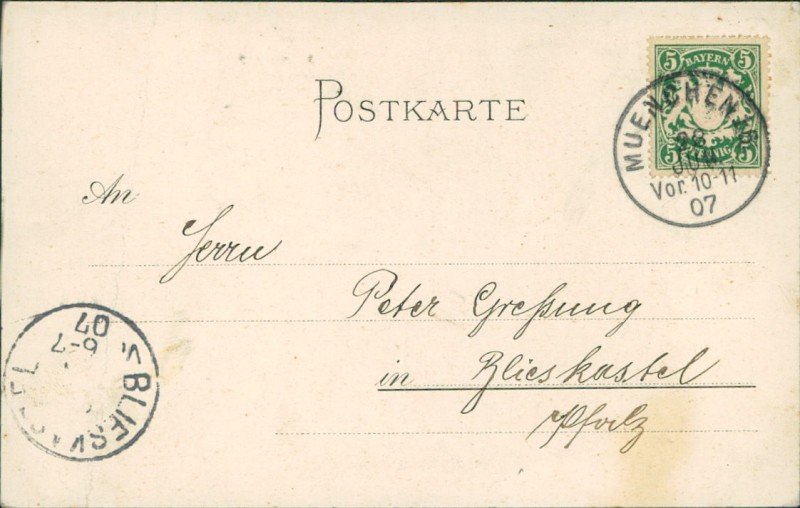 POSTKARTE
5 BAYERN 5
5 PFENNIG 5
MUENCHEN
28
JUN.
Vor. 10-11
07
An
Herrn
Peter Greßung
in Blieskastel
Pfalz
BLIESKASTEL
6-7
07